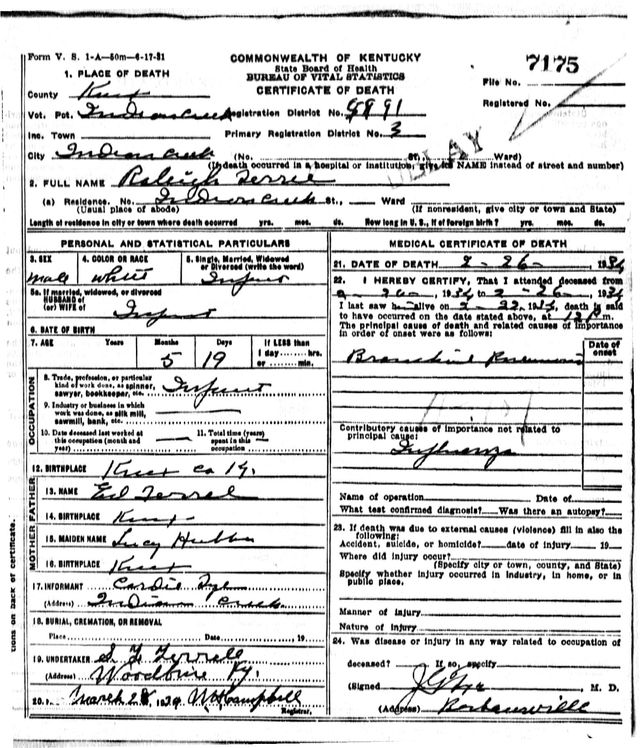 Form V. S. 1-A—50m—6-17-31
COMMONWEALTH OF KENTUCKY
State Board of Health
BUREAU OF VITAL STATISTICS
CERTIFICATE OF DEATH
7175
File No.
Registered No.
1. PLACE OF DEATH
County Knox
Vot. Pct. Indian Creek Registration District No.
Inc. Town Primary Registration District No. 3
DELAY
City Indian Creek (No. St., Ward)
(If death occurred in a hospital or institution, give its NAME instead of street and number)
2. FULL NAME Raleigh
(a) Residence. No. Indian Creek St., Ward
(Usual place of abode) (If nonresident, give city or town and State)
Length of residence in city or town where death occurred yrs. mos. ds. How long in U. S., if of foreign birth? yrs. mos. ds.
PERSONAL AND STATISTICAL PARTICULARS
3. SEX 4. COLOR OR RACE 5. Single, Married, Widowed or Divorced (write the word)
male white Infant
5a. If married, widowed, or divorced
HUSBAND of
(or) WIFE of Infant
6. DATE OF BIRTH
7. AGE Years Months Days If LESS than
5 19 1 day hrs.
or min.
OCCUPATION
8. Trade, profession, or particular
kind of work done, as spinner,
sawyer, bookkeeper, etc. Infant
9. Industry or business in which
work was done, as silk mill,
sawmill, bank, etc.
10. Date deceased last worked at
this occupation (month and
year)
11. Total time (years)
spent in this
occupation
12. BIRTHPLACE Knox Co Ky.
FATHER
13. NAME Ed Terrel
14. BIRTHPLACE Knox
MOTHER
15. MAIDEN NAME Lucy
16. BIRTHPLACE Knox
17. INFORMANT Cardie
(Address) Indian Creek
18. BURIAL, CREMATION, OR REMOVAL
Place, Date, 19
19. UNDERTAKER Terrell
(Address) Woodbine Ky.
20. March 28, 19 Campbell
Registrar.
MEDICAL CERTIFICATE OF DEATH
21. DATE OF DEATH 2-26- 1934
22. I HEREBY CERTIFY, That I attended deceased from
, 1934 to 2-26-, 1934
I last saw alive on 2-22, 1934, death is said
to have occurred on the date stated above, at 12 m.
The principal cause of death and related causes of importance
in order of onset were as follows:
Date of onset
Bronchial Pneumonia
Contributory causes of importance not related to
principal cause:
Influenza
Name of operation Date of
What test confirmed diagnosis? Was there an autopsy?
23. If death was due to external causes (violence) fill in also the
following:
Accident, suicide, or homicide? date of injury 19
Where did injury occur?
(Specify city or town, county, and State)
Specify whether injury occurred in industry, in home, or in
public place.
Manner of injury
Nature of injury
24. Was disease or injury in any way related to occupation of
deceased? If so, specify
(Signed) M. D.
(Address) Barbourville
tions on back of certificate.